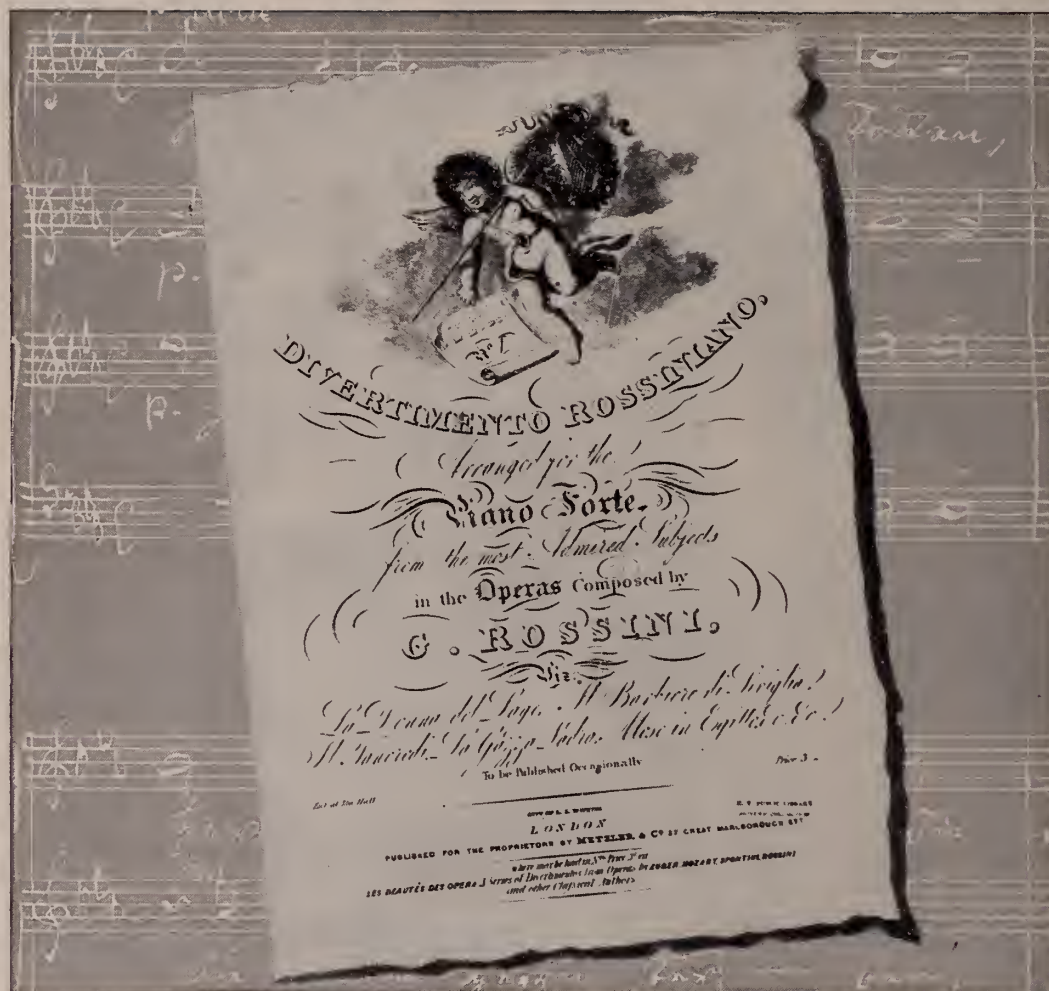 Nº 1
DIVERTIMENTO ROSSINIANO.
Arranged for the
Piano Forte.
from the most Admired Subjects
in the Operas Composed by
G. ROSSINI.
Viz.
La Donna del Lago. Il Barbiere di Siviglia
Il Tancredi. La Gazza Ladra. Mose in Egitto &c. &c.
To be Published Occasionally
Price 3
Ent at Sta Hall
LONDON
PUBLISHED FOR THE PROPRIETORS BY METZLER & Cº 37 GREAT MARLBOROUGH STT
where may be had in Nos Price 3s ea
LES BEAUTÉS DES OPERA, A Series of Divertimentos from Operas by AUBER MOZART, SPONTINI, ROSSINI
and other Classical Authors
p.
p.